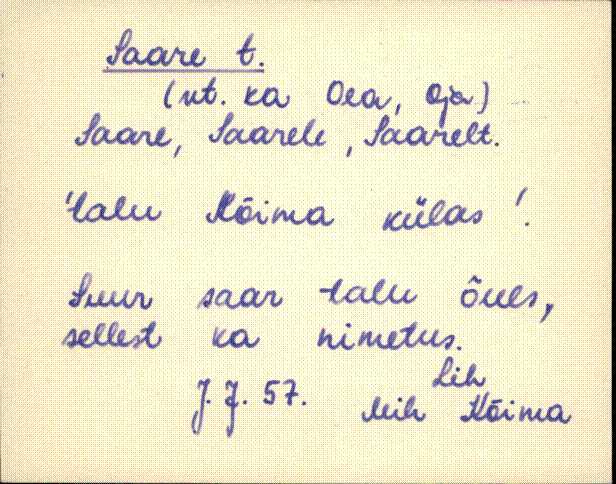 Saare t.
(vt. ka Oea, Oja)
Saare, Saarele, Saarelt.
'talu Kõima külas'.
Suur saar talu õues,
sellest ka nimetus.
Lih
J. J. 57. Mih Kõima